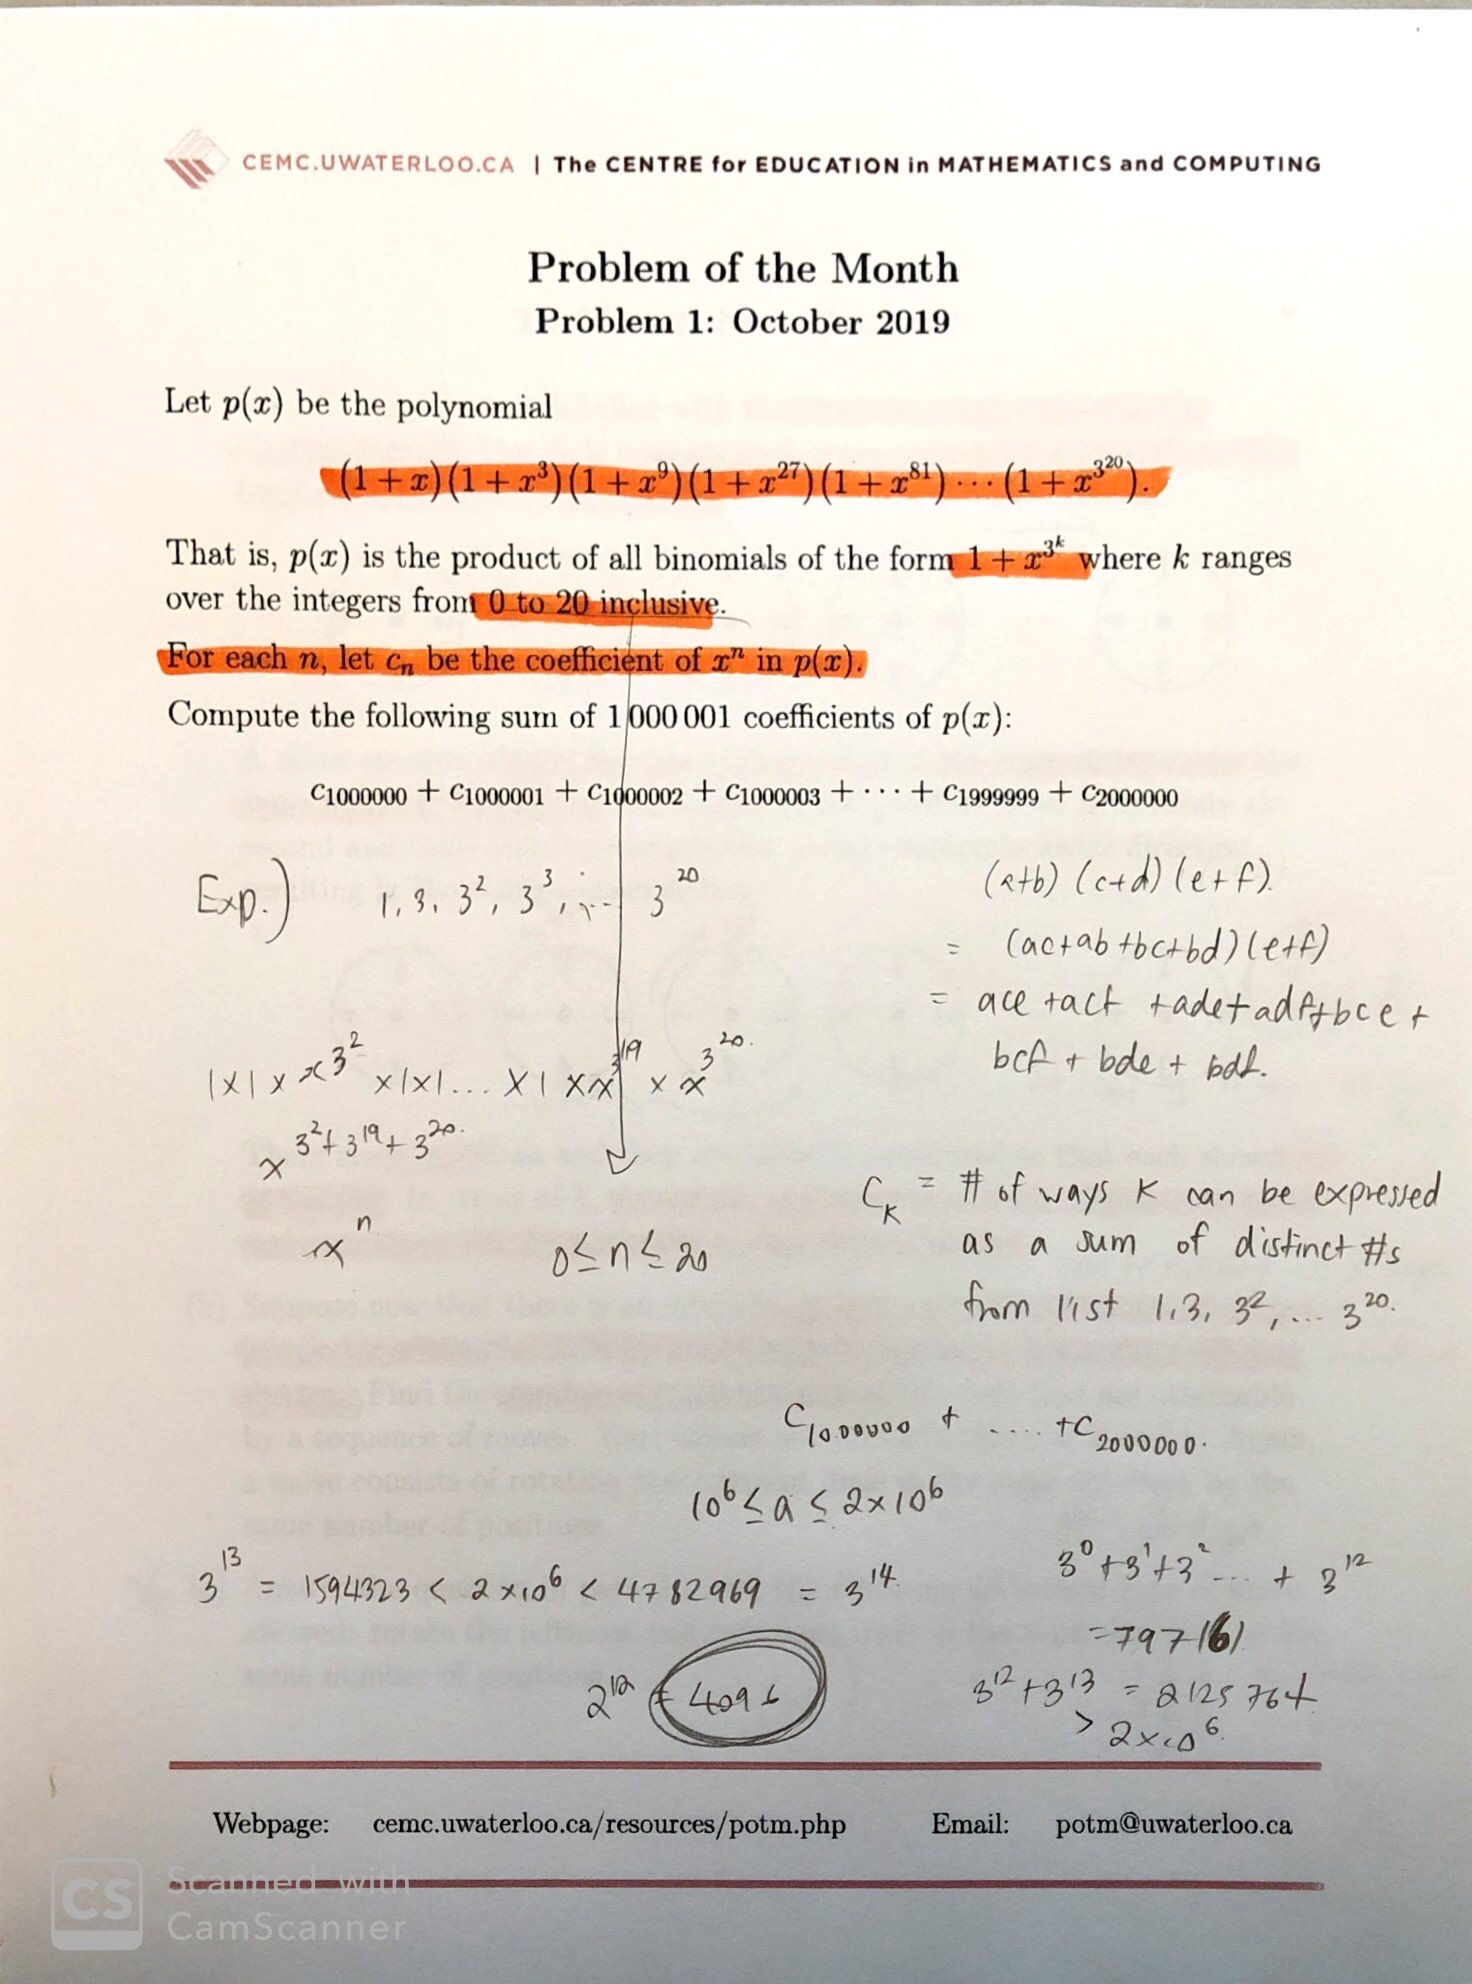 CEMC.UWATERLOO.CA | The CENTRE for EDUCATION in MATHEMATICS and COMPUTING
Problem of the Month
Problem 1: October 2019
Let p(x) be the polynomial
(1 + x)(1 + x^3)(1 + x^9)(1 + x^27)(1 + x^81) ··· (1 + x^3^20).
That is, p(x) is the product of all binomials of the form 1 + x^3^k where k ranges
over the integers from 0 to 20 inclusive.
For each n, let c_n be the coefficient of x^n in p(x).
Compute the following sum of 1 000 001 coefficients of p(x):
c_1000000 + c_1000001 + c_1000002 + c_1000003 + ··· + c_1999999 + c_2000000
Exp.) 1, 3, 3^2, 3^3, ... 3^20
(a+b) (c+d) (e+f).
= (ac+ab+bc+bd)(e+f)
= ace +acf +ade+adf+bce+
bcf + bde + bdf.
1×1× x^3^2 ×1×1... ×1 ×x^3^19 × x^3^20.
x^3^2+3^19+3^20.
x^n 0≤n≤20
C_K = # of ways K can be expressed
as a sum of distinct #s
from list 1,3, 3^2, ... 3^20.
C_1000000 + .... +C_2000000.
10^6 ≤ a ≤ 2×10^6
3^13 = 1594323 < 2×10^6 < 4782969 = 3^14.
3^0+3^1+3^2 ... + 3^12
=797161
2^12 = 4096
3^12+3^13 = 2125764
> 2×10^6.
Webpage: cemc.uwaterloo.ca/resources/potm.php Email: potm@uwaterloo.ca
CS Scanned with
CamScanner